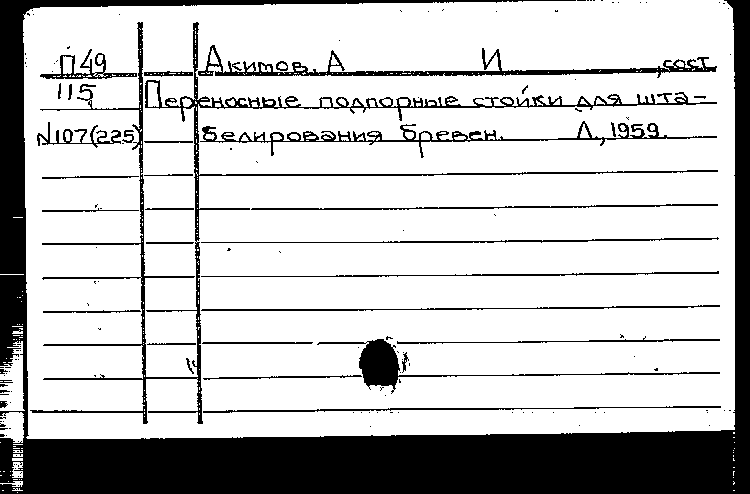 П49 Акимов, А И ,сост.
115 Переносные подпорные стойки для шта-
N107(225) белирования бревен. Л., 1959.